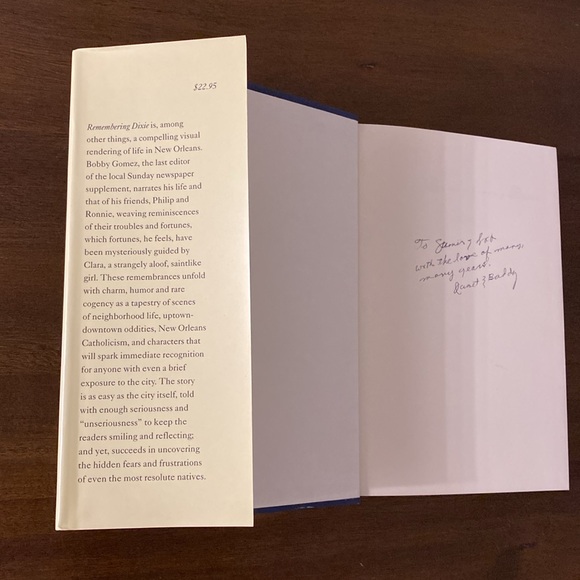 $22.95
Remembering Dixie is, among
other things, a compelling visual
rendering of life in New Orleans.
Bobby Gomez, the last editor
of the local Sunday newspaper
supplement, narrates his life and
that of his friends, Philip and
Ronnie, weaving reminiscences
of their troubles and fortunes,
which fortunes, he feels, have
been mysteriously guided by
Clara, a strangely aloof, saintlike
girl. These remembrances unfold
with charm, humor and rare
cogency as a tapestry of scenes
of neighborhood life, uptown-
downtown oddities, New Orleans
Catholicism, and characters that
will spark immediate recognition
for anyone with even a brief
exposure to the city. The story
is as easy as the city itself, told
with enough seriousness and
“unseriousness” to keep the
readers smiling and reflecting;
and yet, succeeds in uncovering
the hidden fears and frustrations
of even the most resolute natives.
To
with the love of many,
many years.